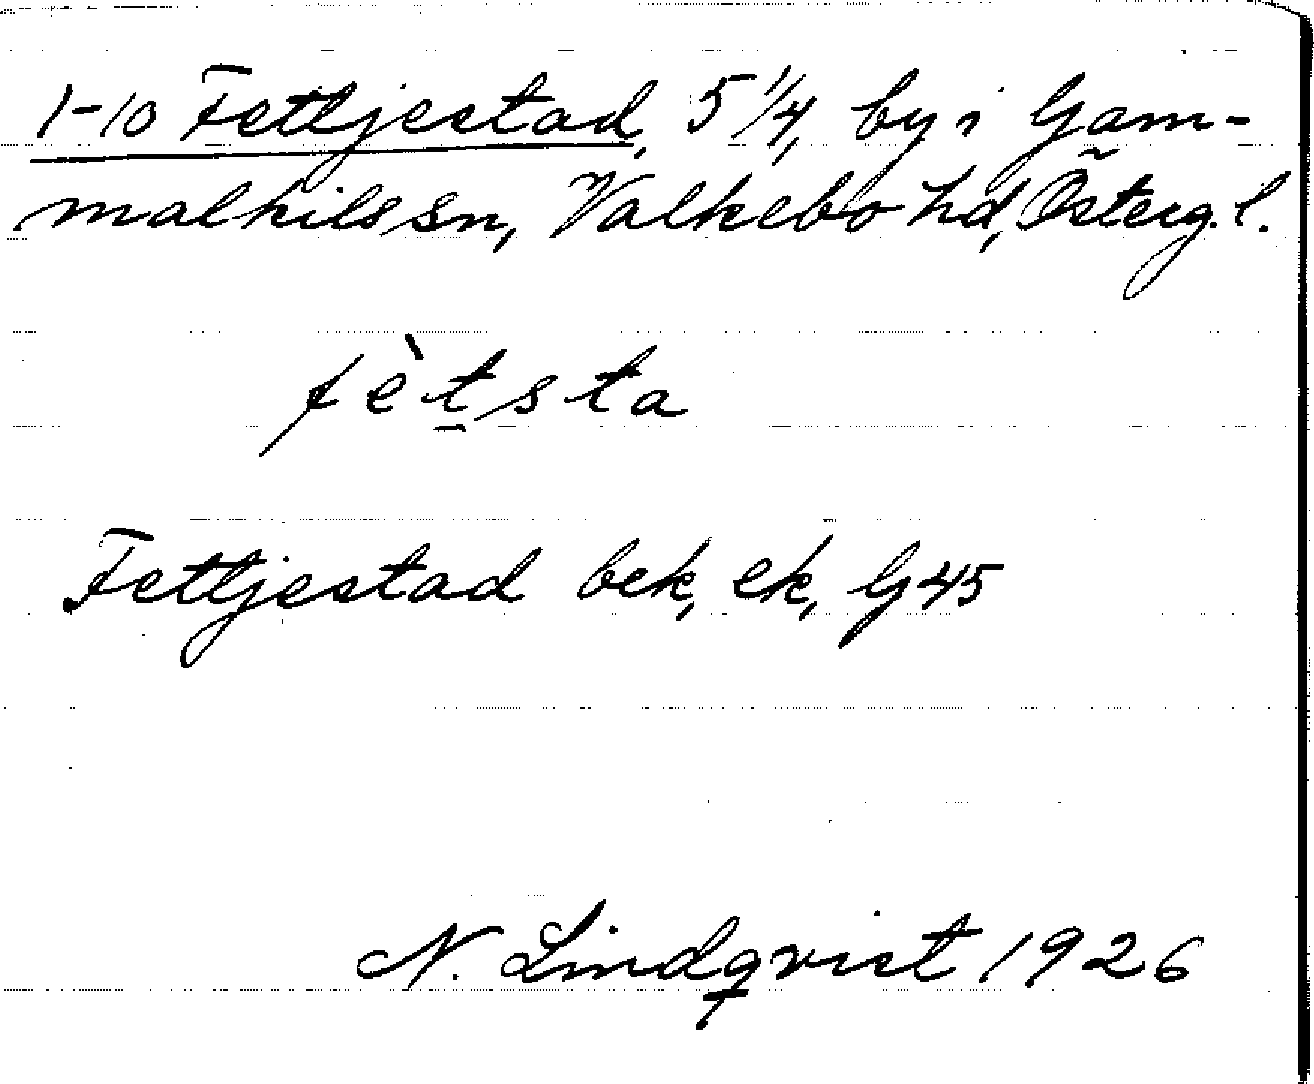 1-10 Fettjestad, 5 1/4, by i Gam-
malkils sn, Valkebo hd, Österg. l.
fètsta
Fettjestad bek, ek, G 45
N. Lindqvist 1926